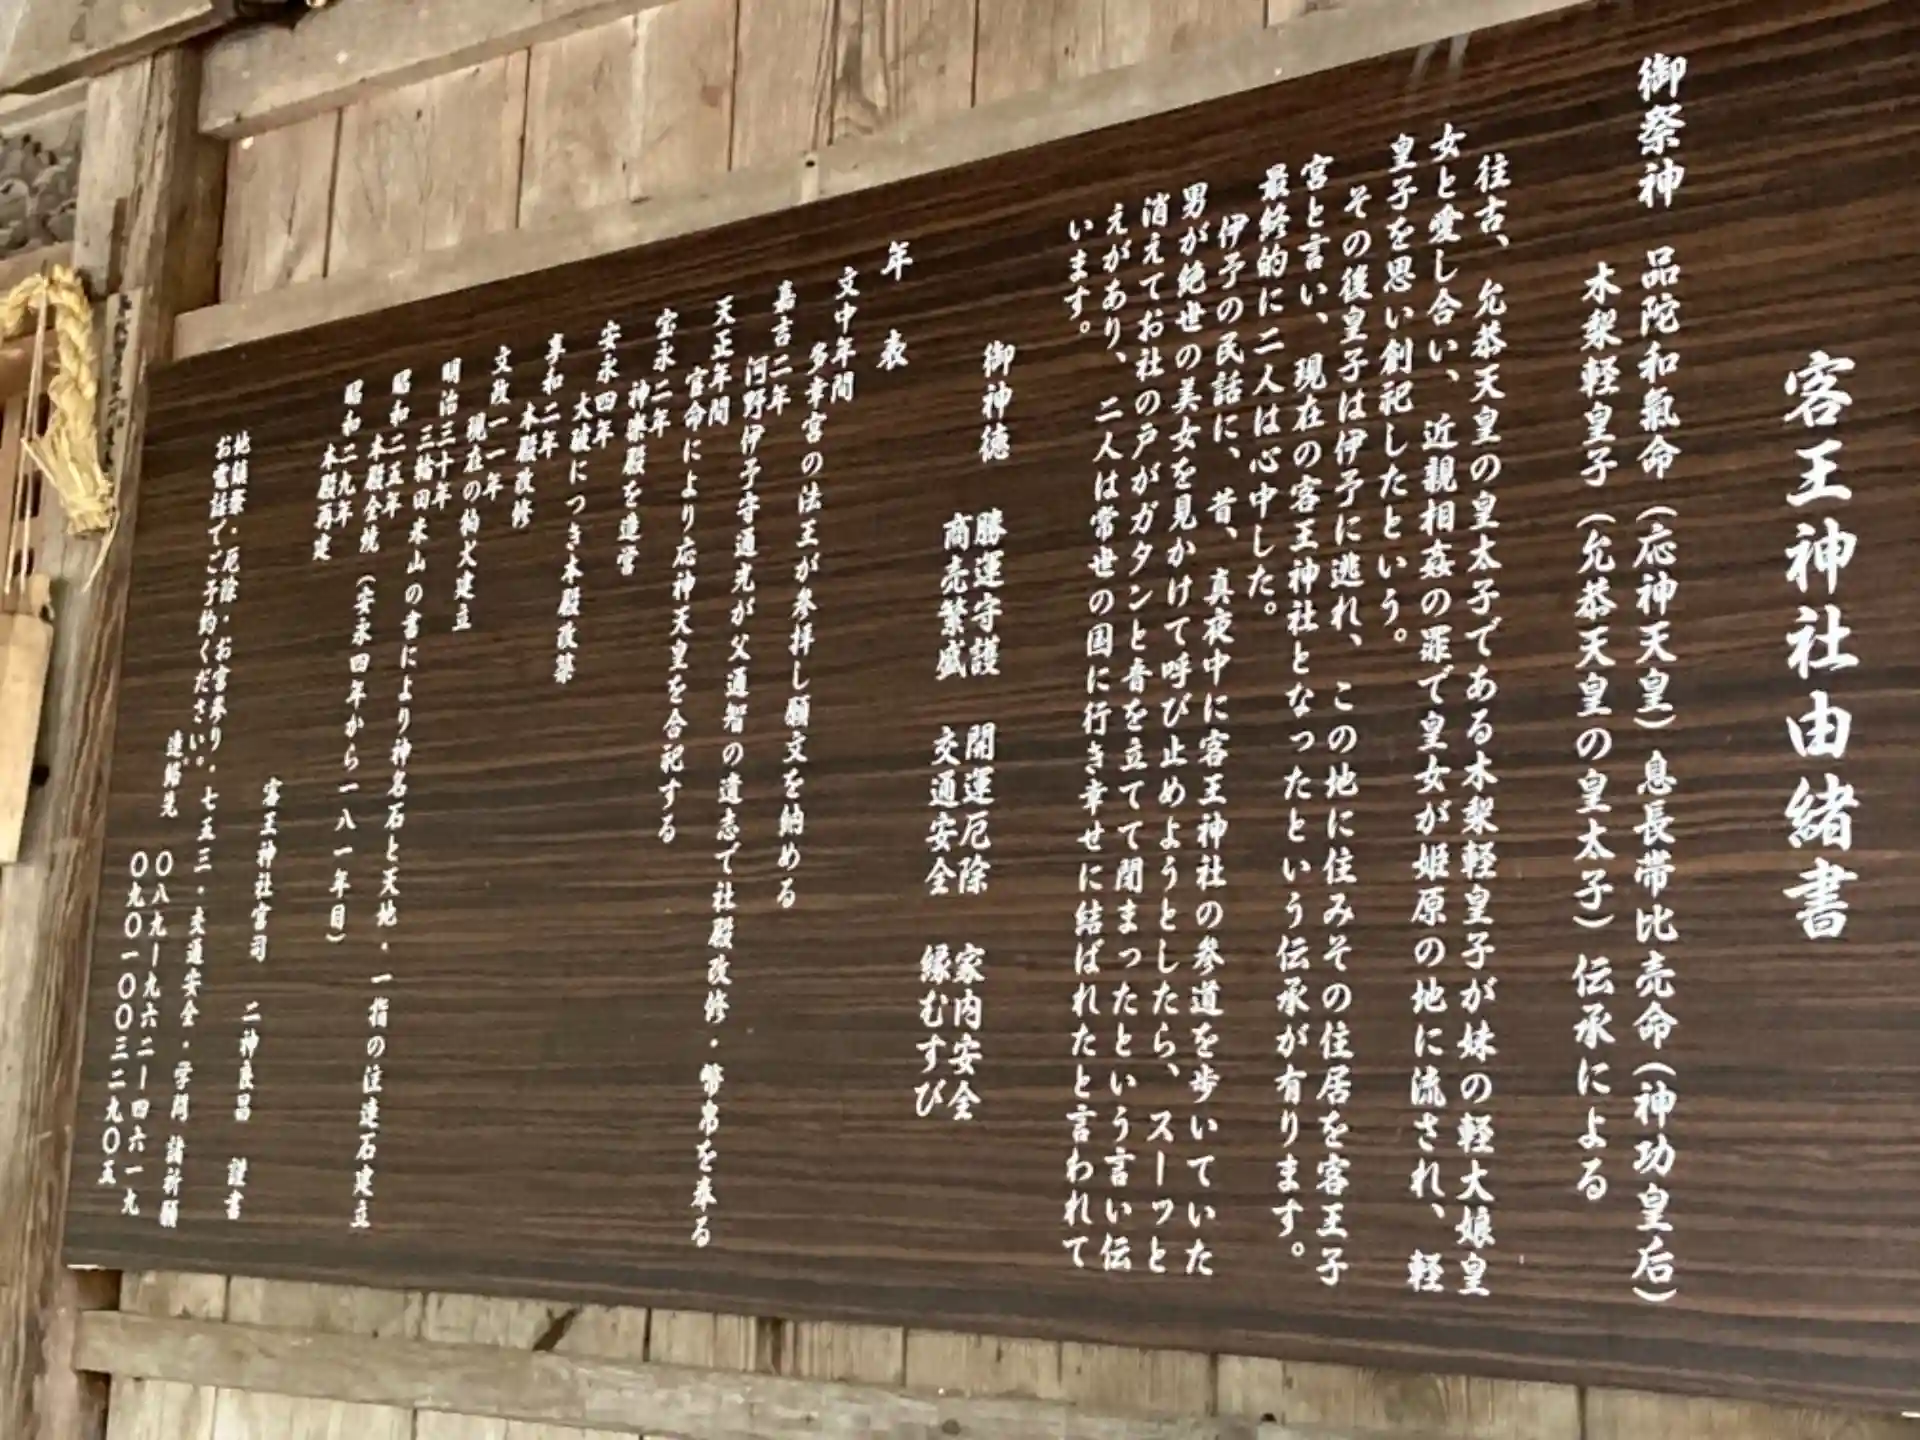 客王神社由緒書
御祭神　品陀和氣命（応神天皇）息長帯比売命（神功皇后）
木梨軽皇子（允恭天皇の皇太子）伝承による
往古、允恭天皇の皇太子である木梨軽皇子が妹の軽大娘皇
女と愛し合い、近親相姦の罪で皇女が姫原の地に流され、軽
皇子を思い創祀したという。
その後皇子は伊予に逃れ、この地に住みその住居を客王子
宮と言い、現在の客王神社となったという伝承が有ります。
最終的に二人は心中した。
伊予の民話に、昔、真夜中に客王神社の参道を歩いていた
男が絶世の美女を見かけて呼び止めようとしたら、スーッと
消えてお社の戸がガタンと音を立てて閉まったという言い伝
えがあり、二人は常世の国に行き幸せに結ばれたと言われて
います。
御神徳　勝運守護　開運厄除　家内安全
商売繁盛　交通安全　縁むすび
年　表
文中年間
多幸宮の法王が参拝し願文を納める
嘉吉二年
河野伊予守通光が父通智の遺志で社殿改修・幣帛を奉る
天正年間
官命により応神天皇を合祀する
宝永二年
神楽殿を造営
安永四年
大破につき本殿改築
享和二年
本殿改修
文政一一年
現在の狛犬建立
明治三十年
三輪田米山の書により神名石と天地・一指の注連石建立
昭和二五年
本殿全焼（安永四年から一八一年目）
昭和二九年
本殿再建
客王神社宮司　二神良昌　謹書
地鎮祭・厄除・お宮参り・七五三・交通安全・学問 諸祈願
お電話でご予約ください。
連絡先　〇八九ー九六二ー四六一九
〇九〇ー一〇〇三二九〇五